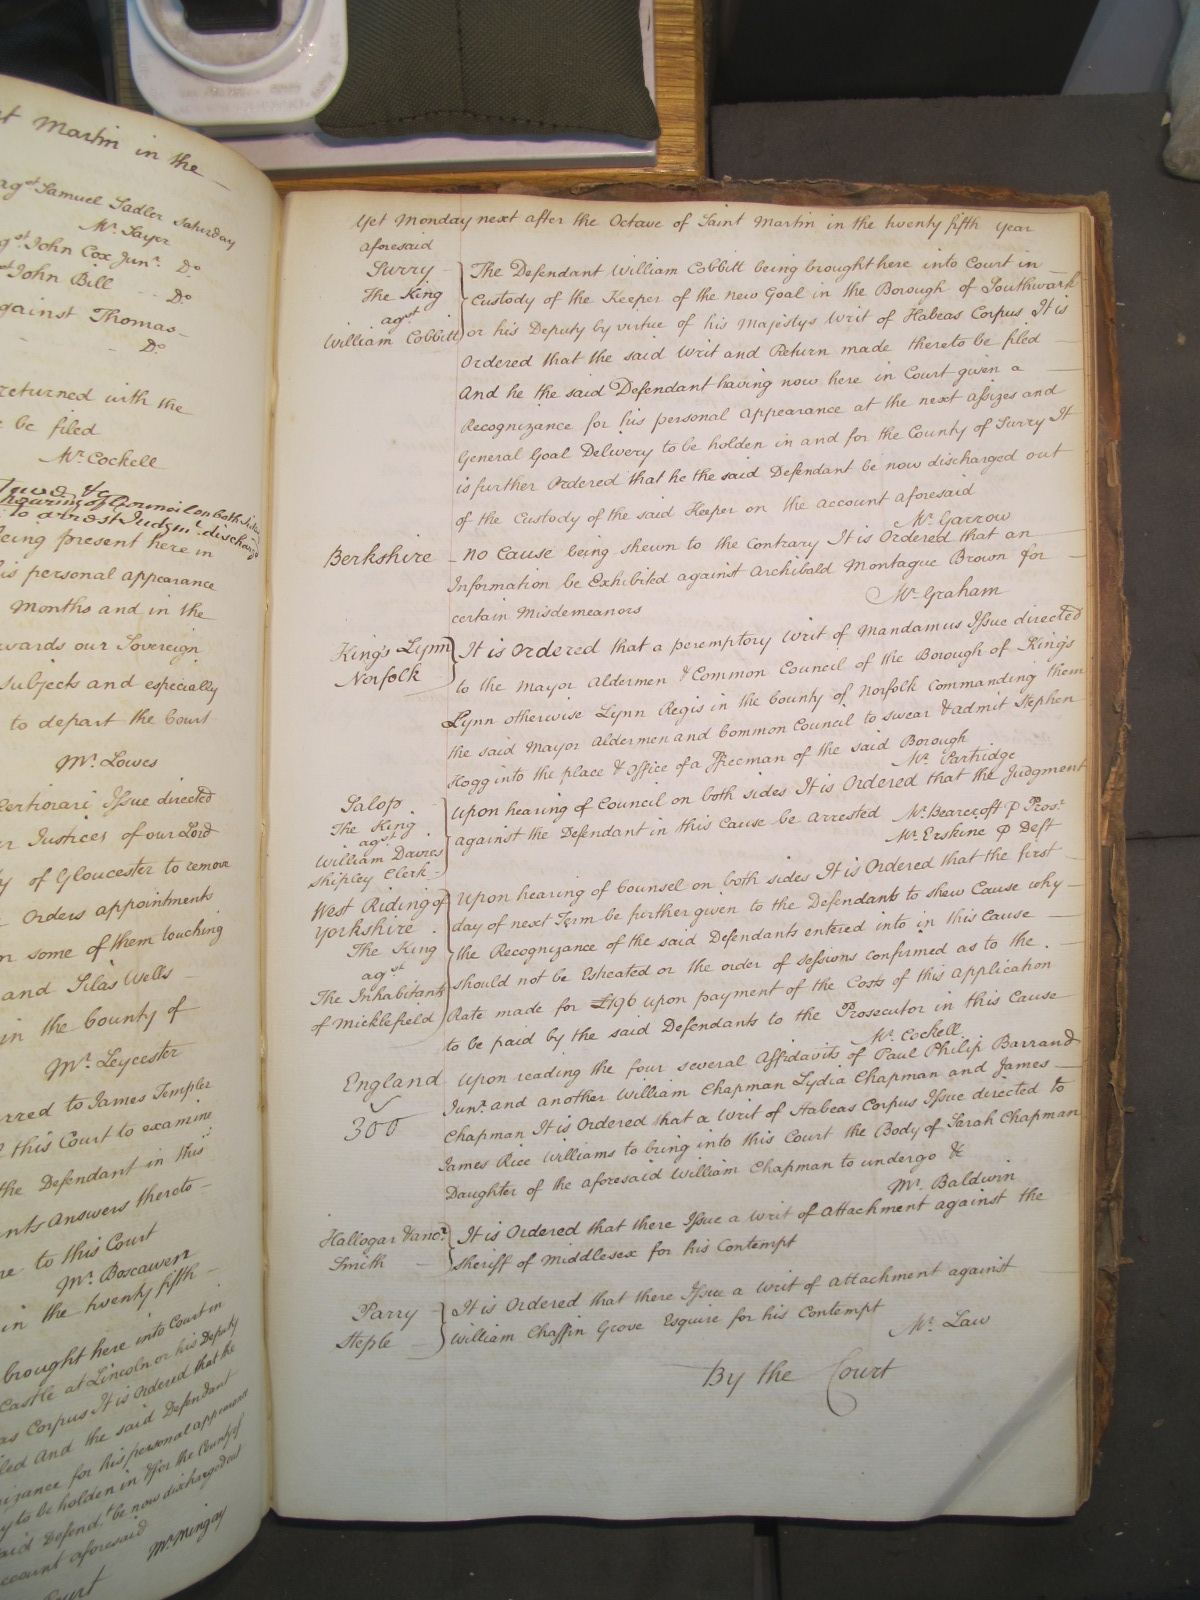 Martin in the
Samuel Sadler Saturday
Mr. Sayer
John Cox Junr. Do
John Bill Do
gainst Thomas
Do
returned with the
be filed
Mr. Cockell
hearing of Council on both sides
to arrest Judgmt. discharged
being present here in
his personal appearance
Months and in the
wards our Sovereign
Subjects and especially
to depart the Court
Mr. Lowes
Certiorari Issue directed
Justices of our Lord
of Gloucester to remove
Orders appointments
some of them touching
and Silas Wells
in the County of
Mr. Leycester
rred to James Templer
this Court to examine
the Defendant in this
nts Answers thereto
to this Court
Mr. Boscawen
in the twenty fifth
brought here into Court in
Castle at Lincoln or his Deputy
as Corpus It is Ordered that the
led And the said Defendant
izance for his personal appearance
to be holden in & for the County of
said Defendt. be now discharged out
account aforesaid
Mr. Mingay
Court
Yet Monday next after the Octave of Saint Martin in the twenty fifth year
aforesaid
Surry
The King
agst
William Cobbitt
The Defendant William Cobbitt being brought here into Court in
Custody of the Keeper of the New Goal in the Borough of Southwark
or his Deputy by virtue of his Majestys Writ of Habeas Corpus It is
Ordered that the said Writ and Return made thereto be filed
And he the said Defendant having now here in Court given a
Recognizance for his personal Appearance at the next Assizes and
General Goal Delivery to be holden in and for the County of Surry It
is further Ordered that he the said Defendant be now discharged out
of the Custody of the said Keeper on the account aforesaid
Mr. Garrow
Berkshire
No Cause being shewn to the Contrary It is Ordered that an
Information be Exhibited against Archibald Montague Brown for
certain Misdemeanors
Mr. Graham
King's Lynn
Norfolk
It is Ordered that a peremptory Writ of Mandamus Issue directed
to the Mayor Aldermen & Common Council of the Borough of King's
Lynn otherwise Lynn Regis in the County of Norfolk Commanding them
the said Mayor Aldermen and Common Council to swear & admit Stephen
Hogg into the place & Office of a Freeman of the said Borough
Mr. Partridge
Salop
The King
agst
William Davies
Shipley Clerk
Upon hearing of Council on both sides It is Ordered that the Judgment
against the Defendant in this Cause be arrested Mr. Bearcroft p Prosr.
Mr. Erskine p Deft
West Riding of
Yorkshire
The King
agst
The Inhabitants
of Micklefield
Upon hearing of Counsel on both sides It is Ordered that the first
day of next Term be further given to the Defendants to shew Cause why
the Recognizance of the said Defendants entered into in this Cause
should not be Estreated or the order of Sessions confirmed as to the
Rate made for £196 upon payment of the Costs of this Application
to be paid by the said Defendants to the Prosecutor in this Cause
Mr. Cockell
England
300
Upon reading the four several Affidavits of Paul Philip Barrand
Junr. and another William Chapman Lydia Chapman and James
Chapman It is Ordered that a Writ of Habeas Corpus Issue directed to
James Rice Williams to bring into this Court the Body of Sarah Chapman
Daughter of the aforesaid William Chapman to undergo &c
Mr. Baldwin
Hallogar & anor.
Smith
It is Ordered that there Issue a Writ of Attachment against the
Sheriff of Middlesex for his Contempt
Parry
Steple
It is Ordered that there Issue a Writ of attachment against
William Chaffin Grove Esquire for his Contempt
Mr. Law
By the Court